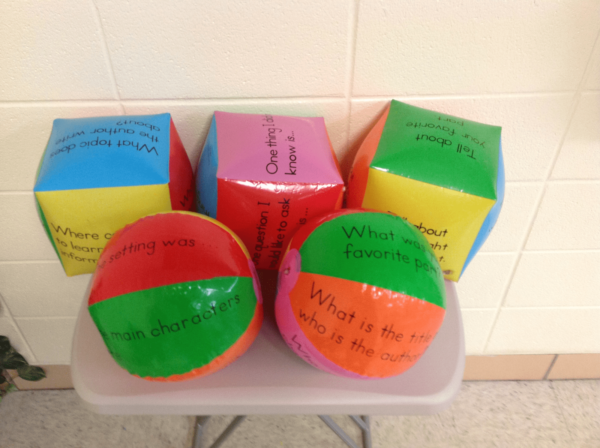 What topic does
the author write
about?
Where
to learn
One thing I
know is...
question I
like to ask
is...
Tell about
your favorite
part.
about
setting was
main characters
What
favorite
What is the title
who is the author